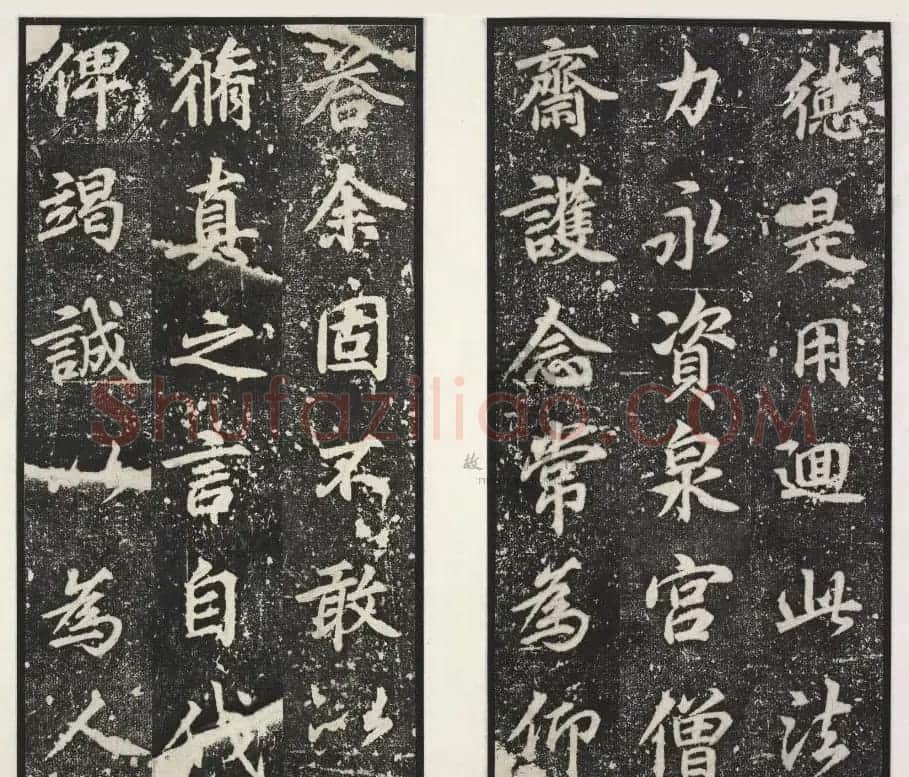 德是用迴此法
力永資泉宮僧
齋護念常為仰
荅余固不敢以
脩真之言自伐
俾竭誠以為人
Shufaziliao.COM
故